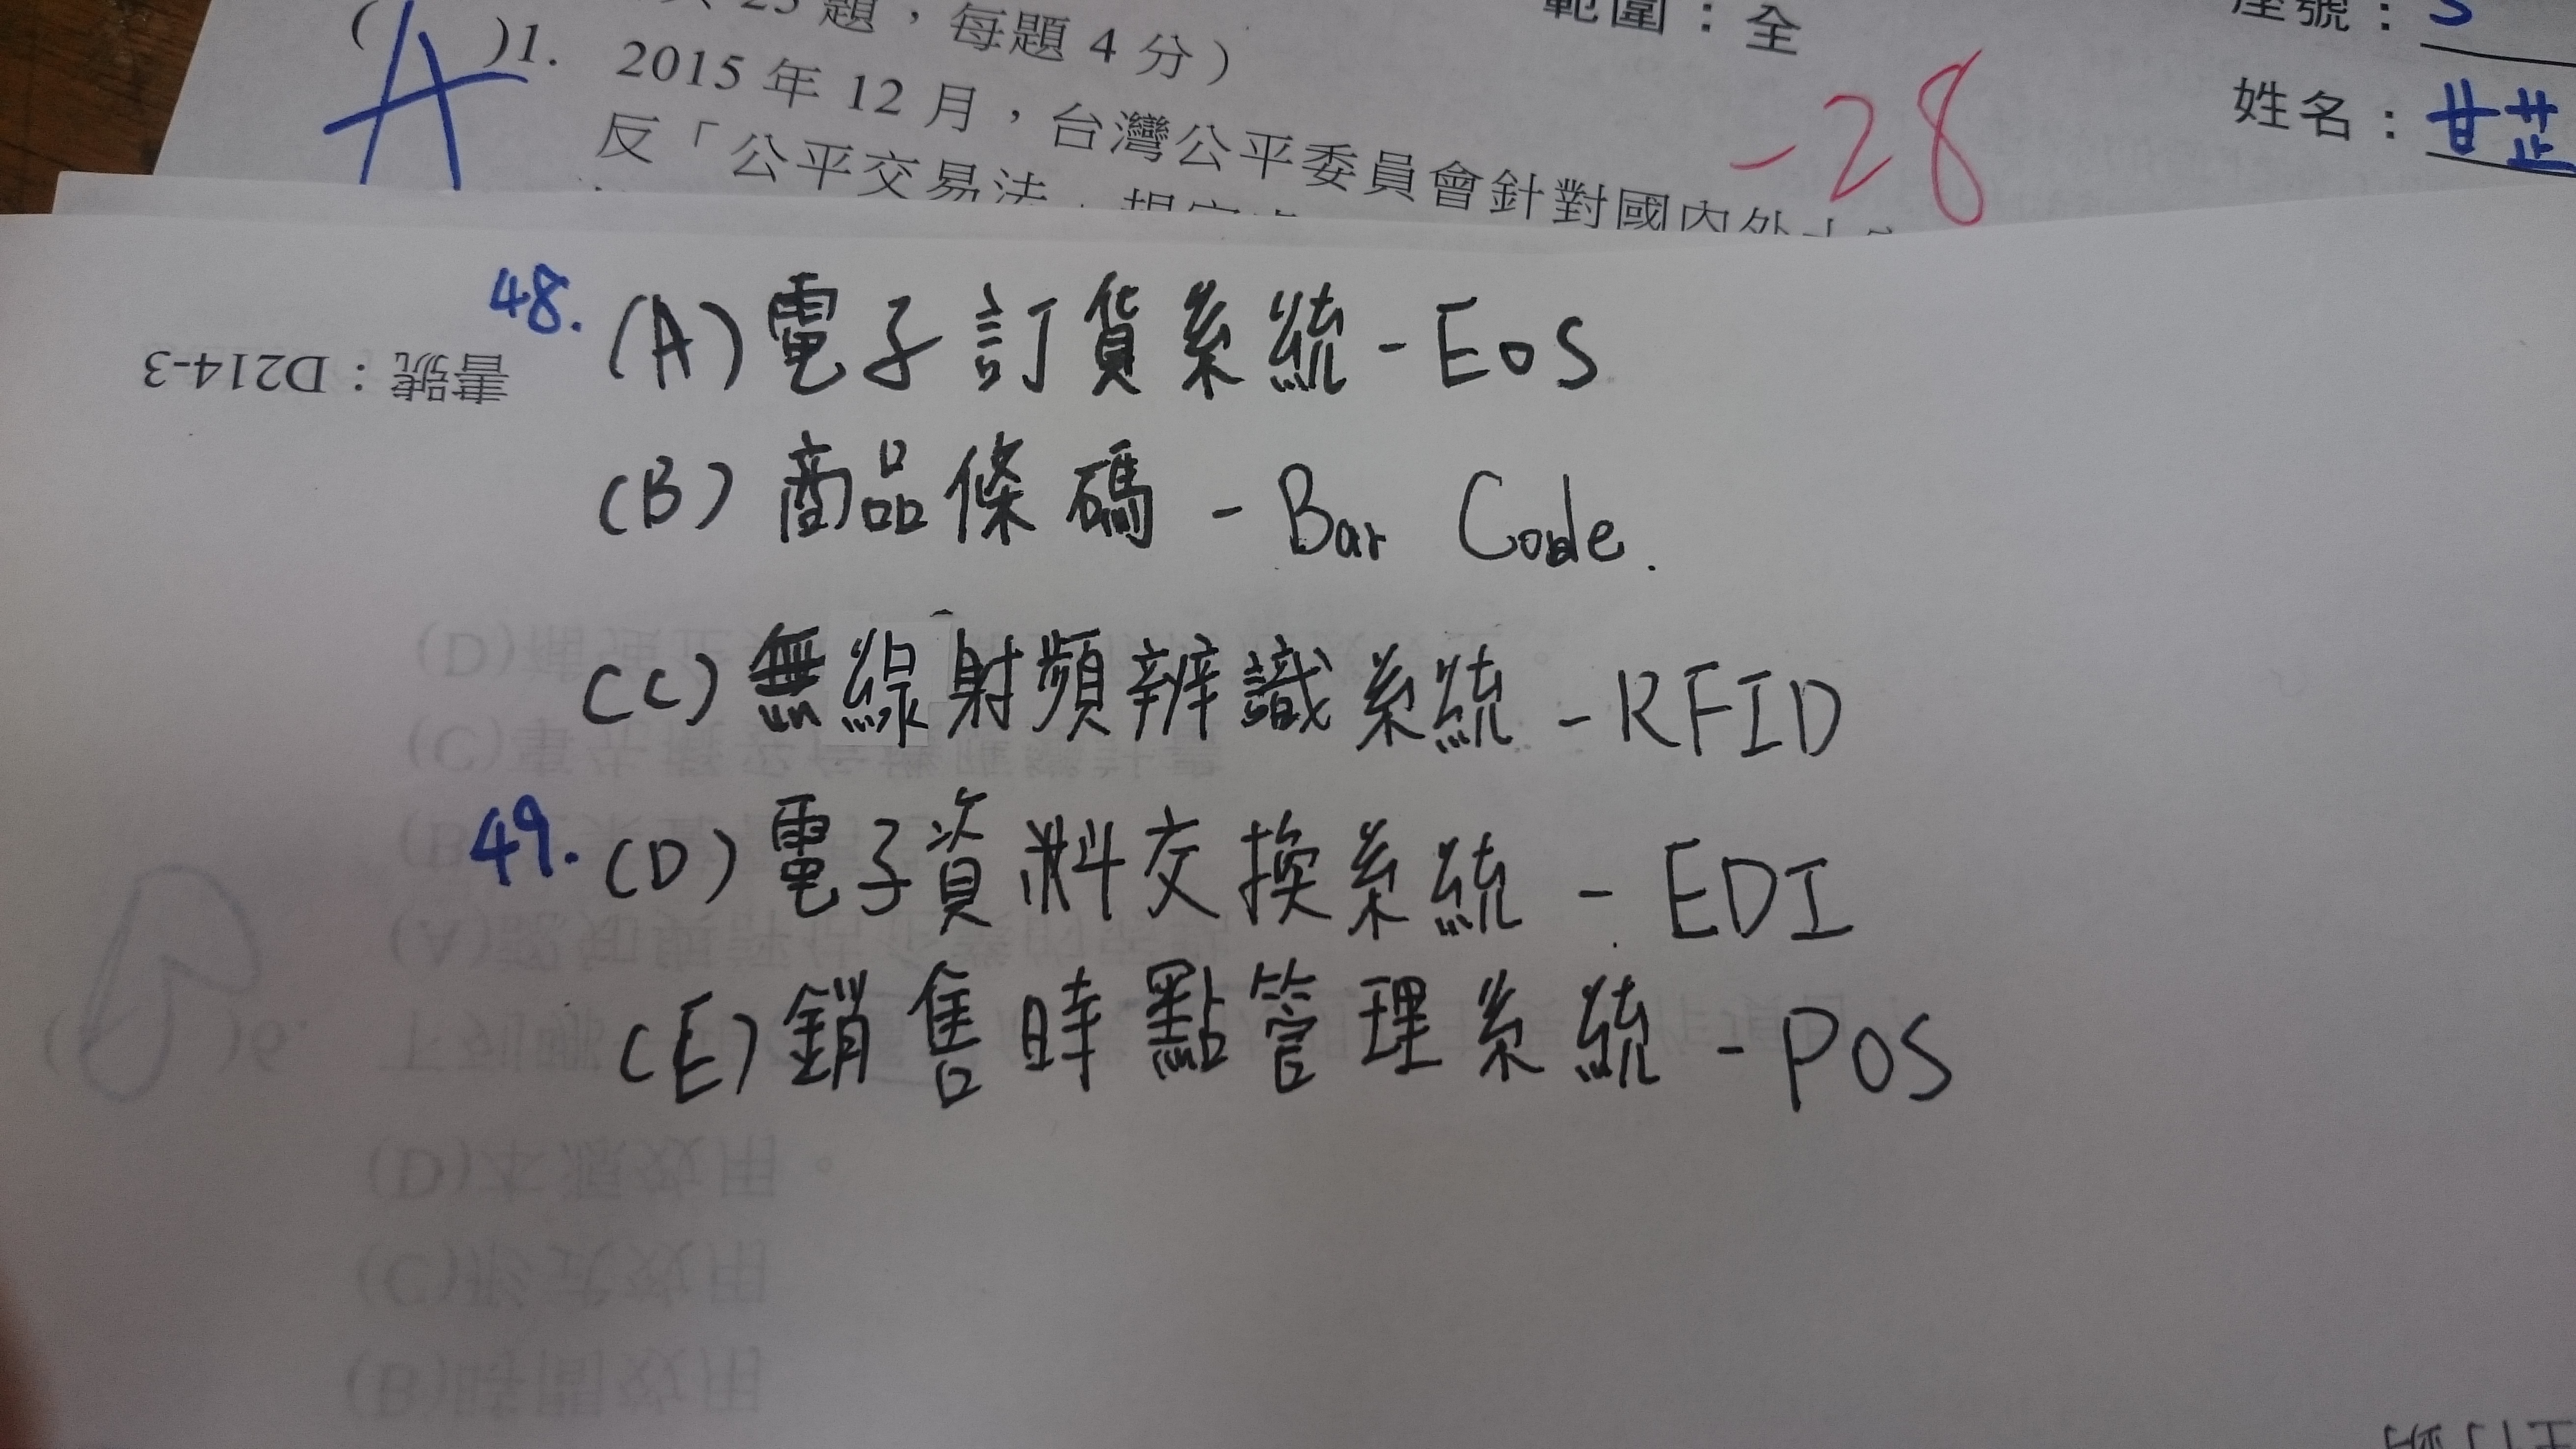 25 題，每題 4 分）
範圍：全
座號：
(A)1. 2015 年 12 月，台灣公平委員會針對國內外
-28
姓名：甘芷
反「公平交易法」規定
48. (A) 電子訂貨系統 - EOS
書號：D214-3
(B) 商品條碼 - Bar Code.
(C) 無線射頻辨識系統 - RFID
49. (D) 電子資料交換系統 - EDI
(E) 銷售時點管理系統 - POS
(D)本源效用。
(C)形式效用
(B)時間效用